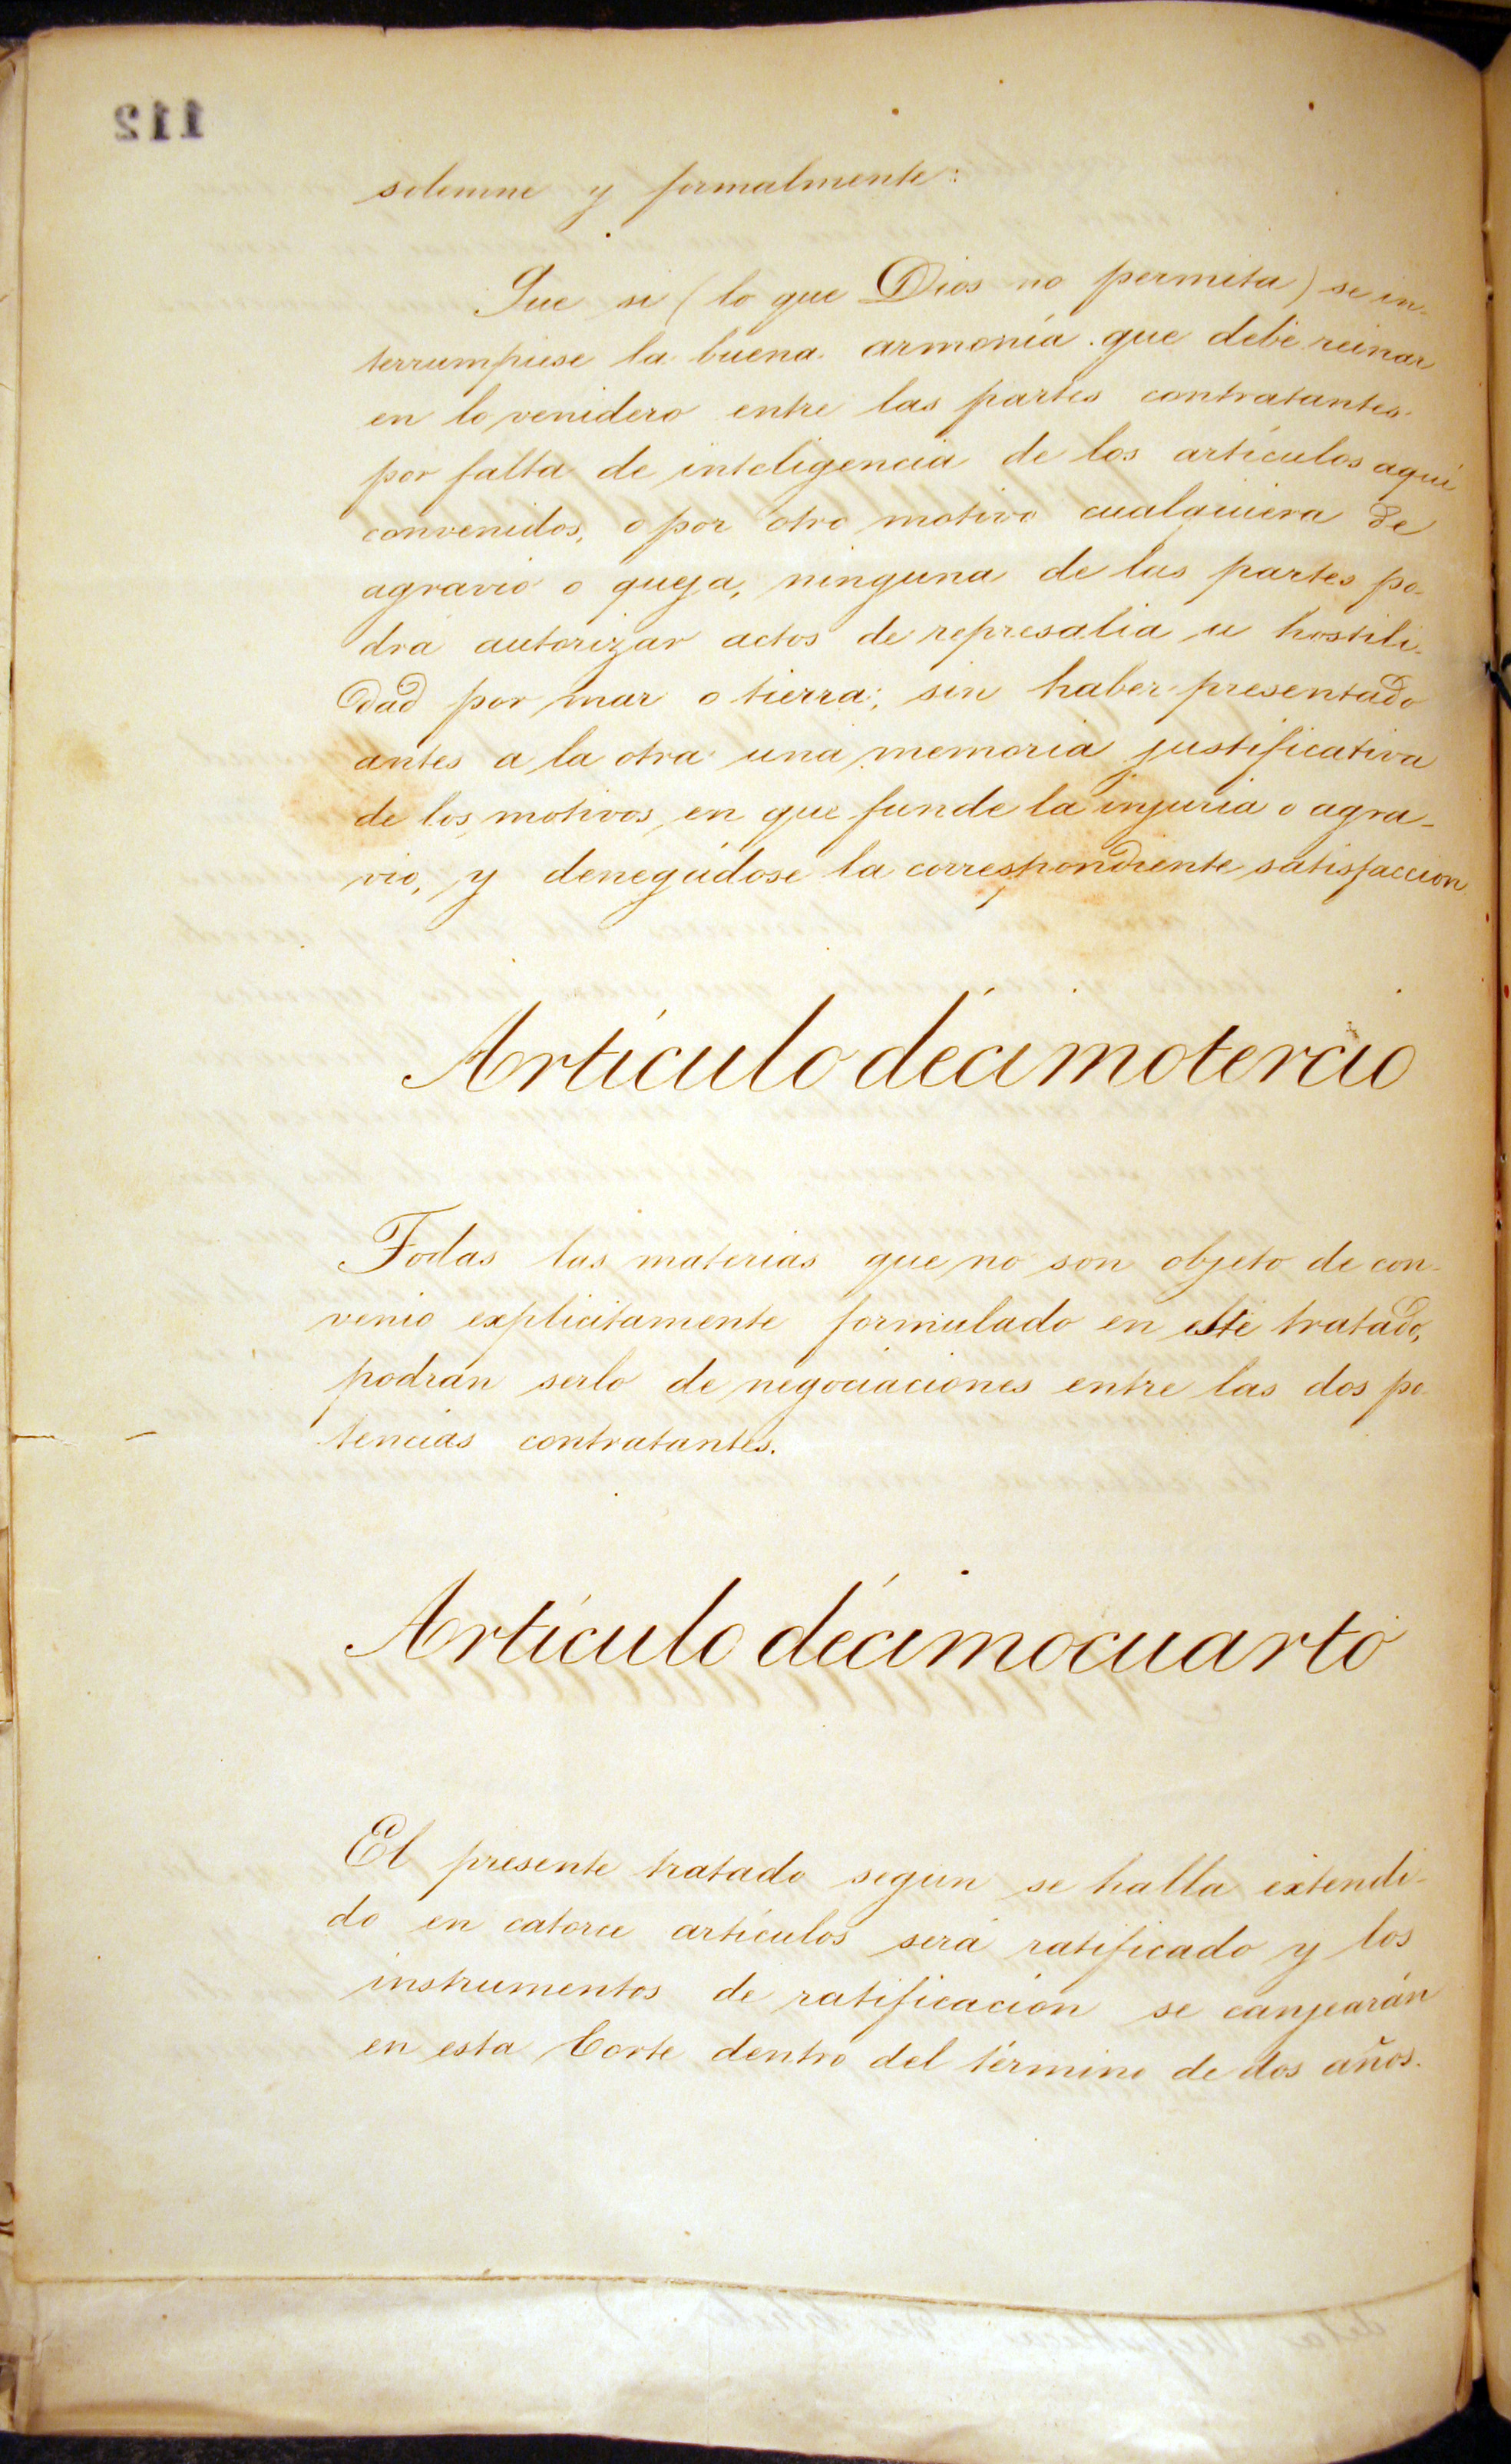 112
solemne y formalmente:
Que si (lo que Dios no permita) se in-
terrumpiese la buena armonía que debe reinar
en lo venidero entre las partes contratantes
por falta de inteligencia de los artículos aquí
convenidos, o por otro motivo cualquiera de
agravio o queja, ninguna de las partes po-
drá autorizar actos de represalia u hostili-
dad por mar o tierra; sin haber presentado
antes a la otra una memoria justificativa
de los motivos en que funde la injuria o agra-
vio, y denegádose la correspondiente satisfaccion.
Artículo décimotercio
Todas las materias que no son objeto de con-
venio explicitamente formulado en este tratado,
podrán serlo de negociaciones entre las dos po-
tencias contratantes.
Artículo décimocuarto
El presente tratado segun se halla extendi-
do en catorce artículos será ratificado y los
instrumentos de ratificación se canjearán
en esta Corte dentro del término de dos años.